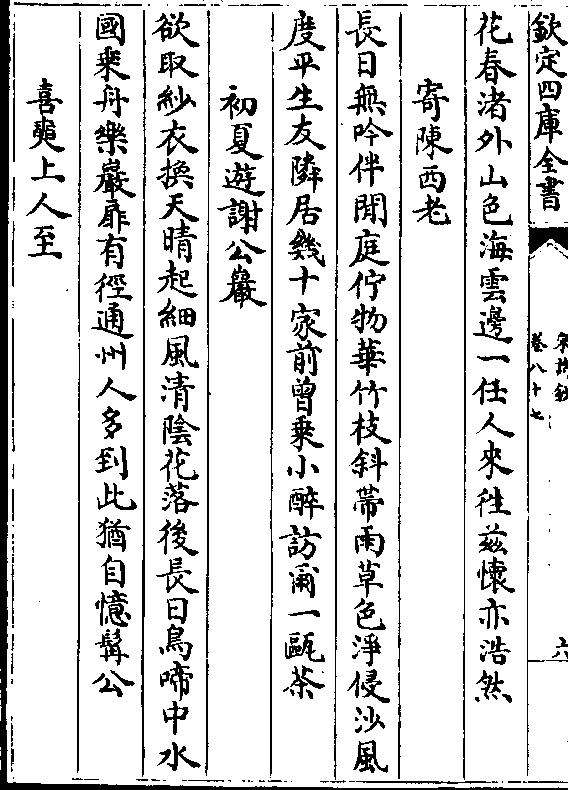 欽定四庫全書
卷八十七
六
花春渚外山色海雲邊一任人來往兹懷亦浩然
寄陳西老
長日無吟伴閒庭佇物華竹枝斜帶雨草色淨侵沙風
度平生友隣居幾十家前曾乗小醉訪爾一甌茶
初夏遊謝公巖
欲取紗衣換天晴起細風清陰花落後長日鳥啼中水
國乗舟樂巖扉有徑通州人多到此猶自憶髯公
喜奭上人至